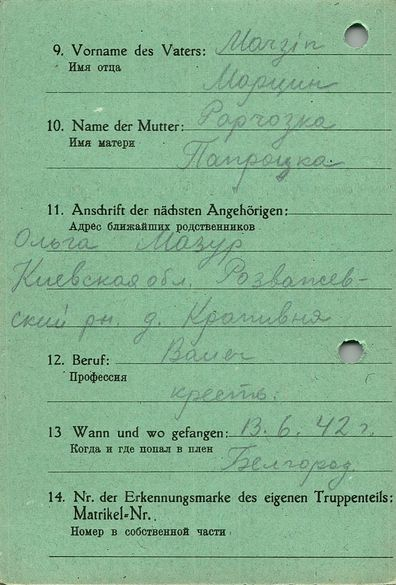 9. Vorname des Vaters: Marzin
Имя отца
Марцин
10. Name der Mutter:
Имя матери
Папроцка
11. Anschrift der nächsten Angehörigen:
Адрес ближайших родственников
Ольга Мазур
Киевская обл. Розважев-
ский рн. д. Крапивня
12. Beruf: Bauer
Профессия
крестьн.
13 Wann und wo gefangen: 13. 6. 42 г.
Когда и где попал в плен
Белгород
14. Nr. der Erkennungsmarke des eigenen Truppenteils:
Matrikel-Nr.
Номер в собственной части